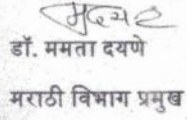 डॉ. ममता दयणे
मराठी विभाग प्रमुख